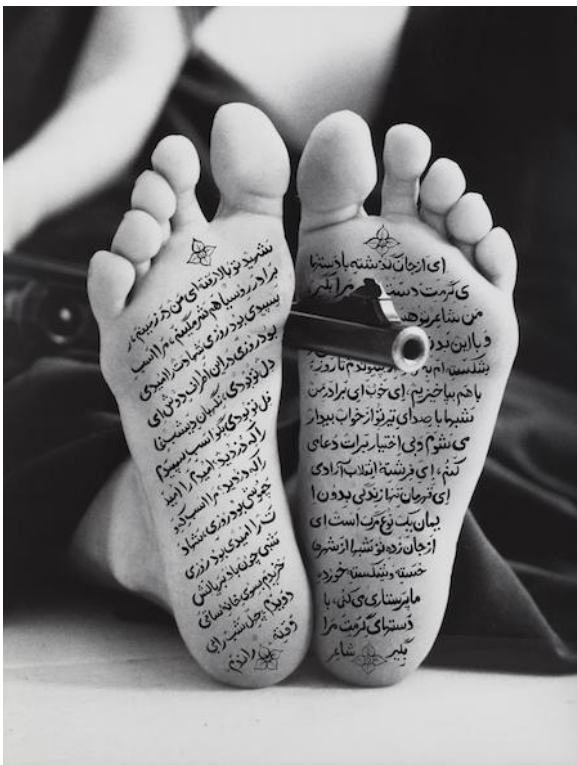 ای از جان گذشته با دستها
ی گرمت دست مرا بگیر
من شاعر
و با این
شکسته ام تا روزی
با هم بپاخیزیم. ای خوب ای برادر من
شبها با صدای تیر تو از خواب بیدار
می شوم و بی اختیار برایت دعای
کنم، ای فرشته انقلاب آزادی
ای قهرمان تنها زندگی بدون ا
یمان یک نوع مرگ است ای
از جان زده تو شبها از شهری
خسته و شکسته خورده
ما پرستاری می کنی، با
دستهای گرمت مرا
بگیر شاعر
تو بالا رفته ای من در زمینم
برادر رو سیاهم شرمگینم، مرا اسب
سپیدی بود روزی شهادت را امیدی
بود روزی در آن اطراف دوش ای
دل تو بودی، نگهبان دیشب
دل تو بودی بگو اسب سپیدم
را که دزدید امیدم را امید
را که دزدید، مرا اسب
چوبی بود روزی، شهاد
ت را امیدی بود روزی
شبی چون باد بر یالش
خزیدم بسوی خانه ساقی
دویدم چهل شب راه
راندم